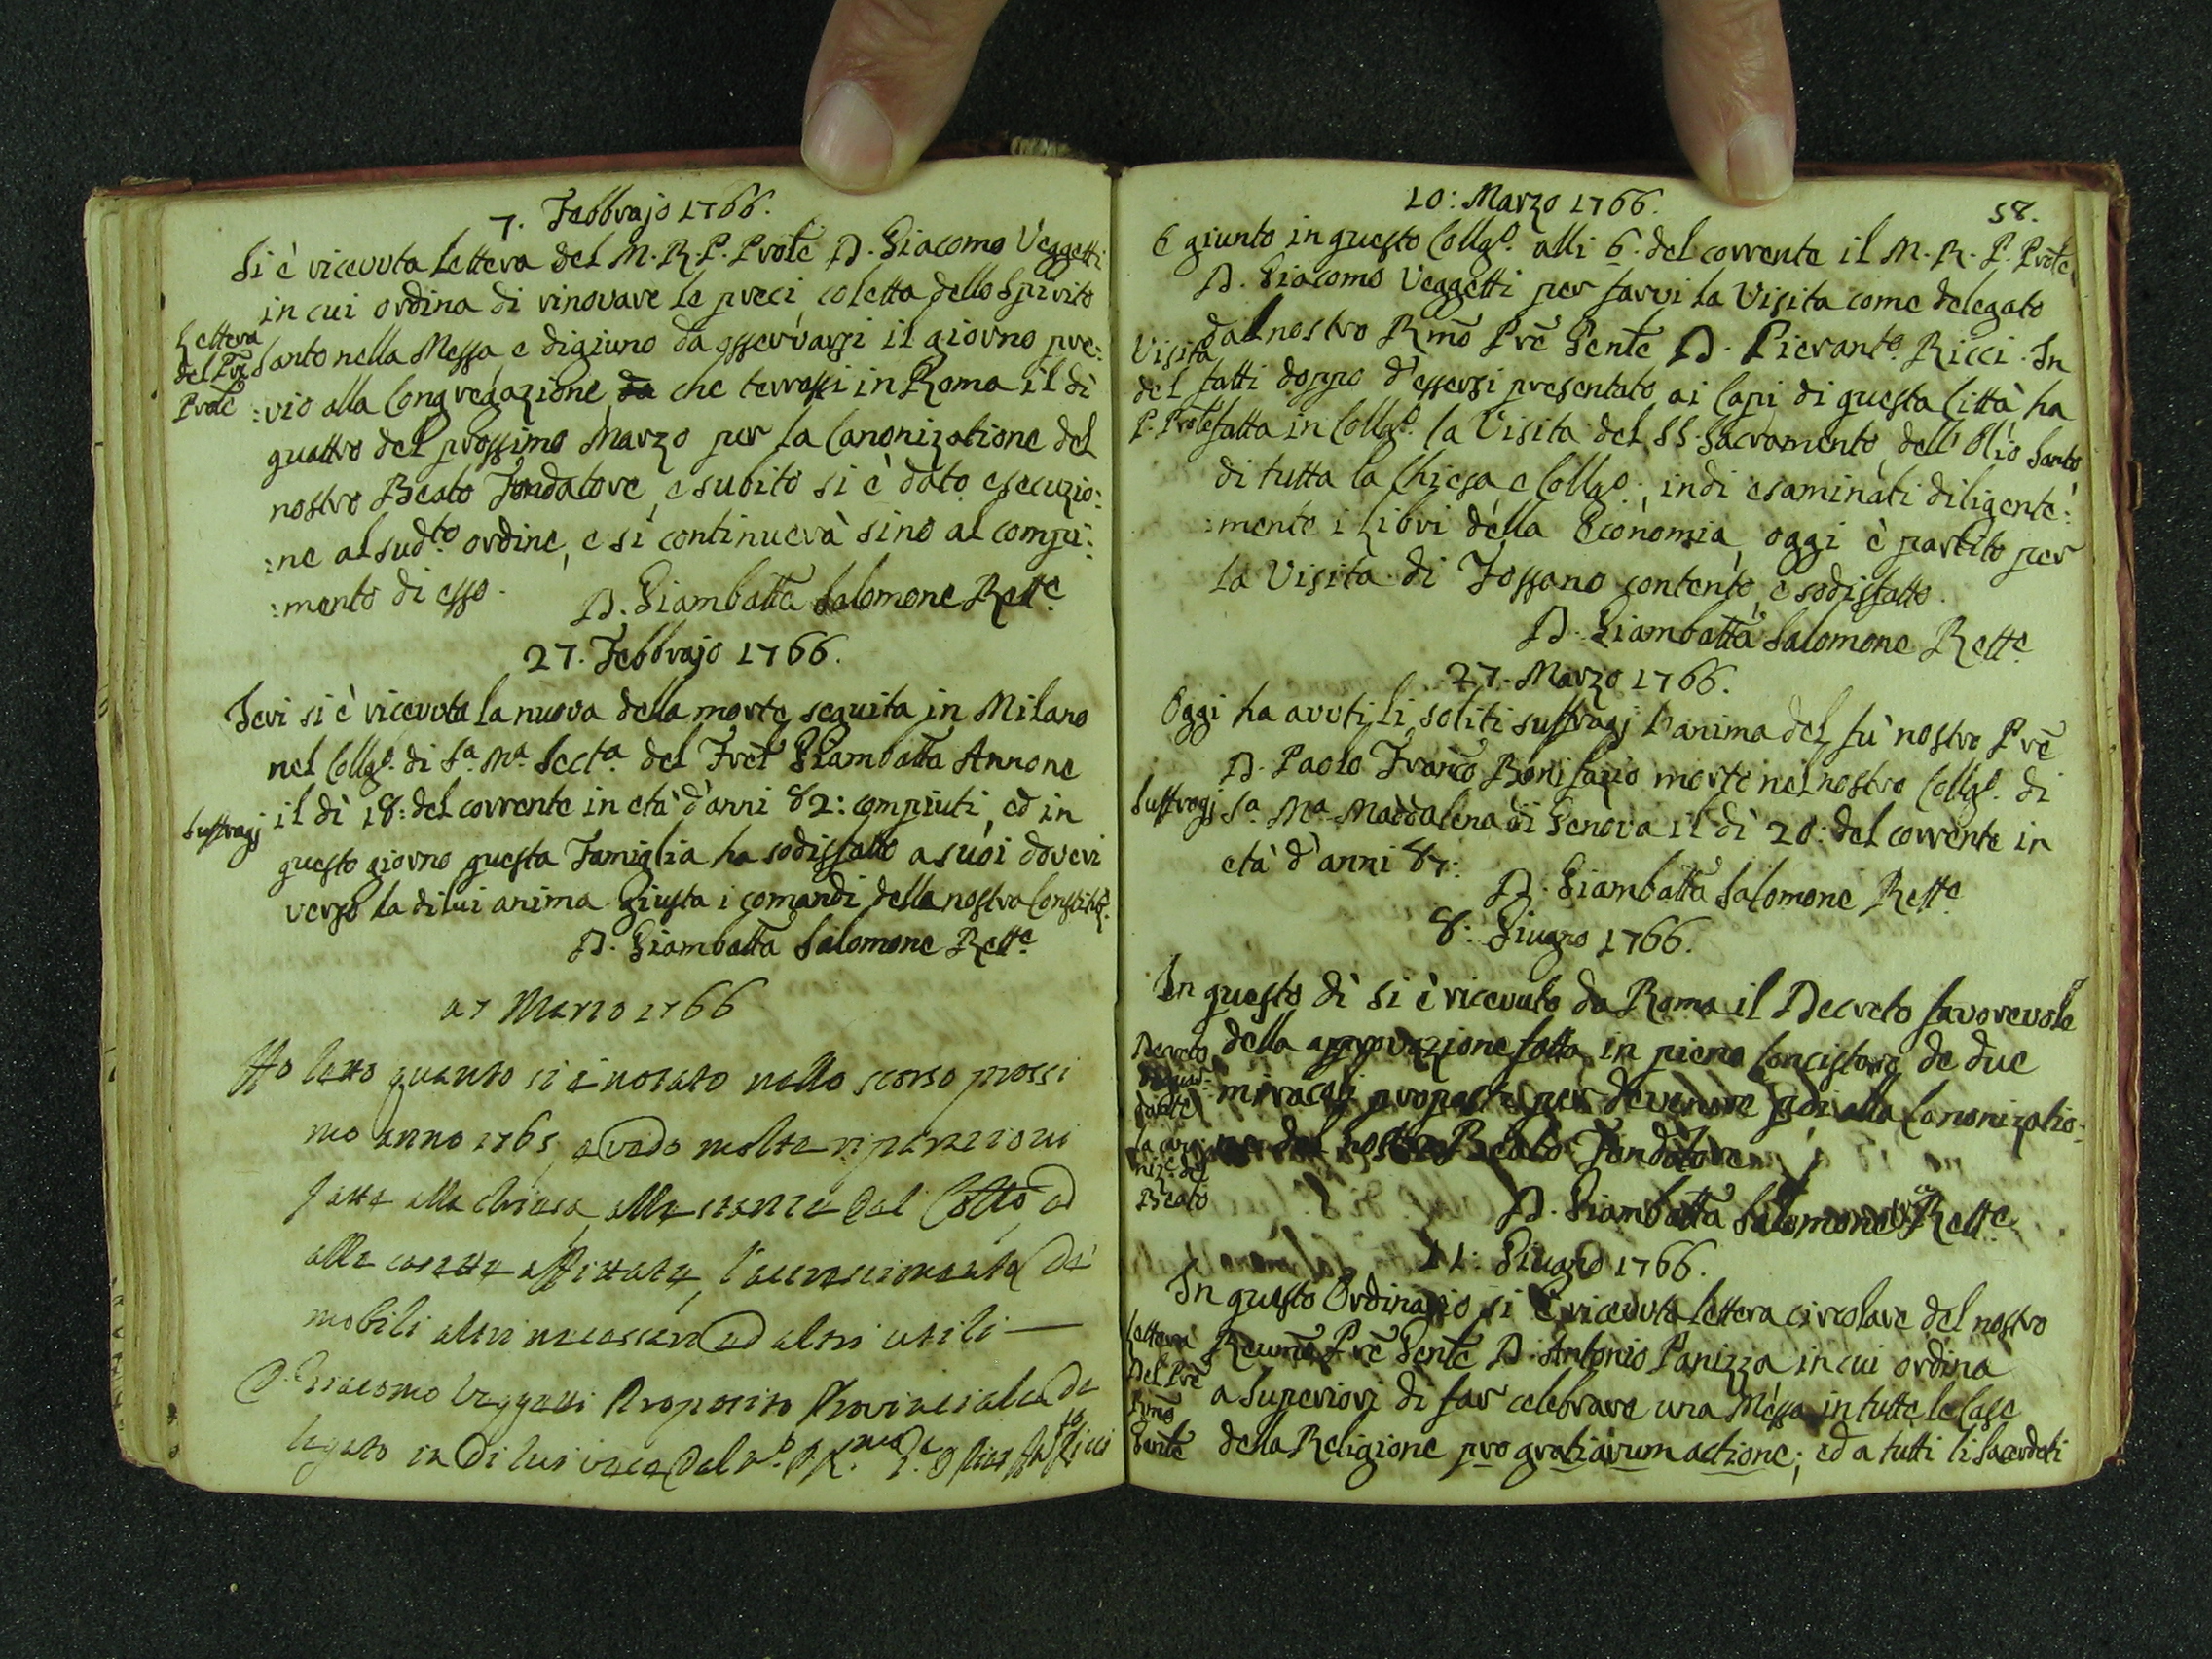 7. Febbrajo 1766.
Si è ricevuta lettera del M. R. P. Prole D. Giacomo Veggetti
in cui ordina di rinovare le preci, coletta dello Spirito
Santo nella Messa, e digiuno da osservarsi il giorno pre:
:vio alla Congregazione, che terrassi in Roma il dì
quattro del prossimo Marzo per la Canonizatione del
nostro Beato Fondatore, e subito si è dato esecuzio:
:ne al sudto ordine, e si continuerà sino al compi:
:mento di esso.
D. Giambatta Salomone Rette
Lettera
del Pre
Prole
27. Febbrajo 1766.
Jeri si è ricevuta la nuova della morte seguita in Milano
nel Collgo. di Sa. Ma. Secta. del Frel Giambatta Annone
il dì 18: del corrente in età d'anni 82: compiuti, ed in
questo giorno questa Famiglia ha sodisfatto a suoi doveri
verso la di lui anima giusta i comandi della nostra Constitut.
D. Giambatta Salomone Rette
Suffragj
a 7 Marzo 1766
Ho letto quanto si è notato nello scorso prossi
mo anno 1765, e vedo molte riparazioni
fatte alla chiesa, alle stanze del Collo, ed
alle casette affittate, l'accrescimento di
mobili altri necessari ed altri utili —
D. Giacomo Veggetti Preposito Provinciale de
legato in di lui vece dal Ricci
58.
10: Marzo 1766.
È giunto in questo Collgo. alli 6. del corrente il M. R. P. Prole
D. Giacomo Veggetti per farvi la Visita come delegato
dal nostro Rmo Pre Gente D. Pieranto. Ricci. In
fatti doppo d'essersi presentato ai Capi di questa Città ha
fatta in Collgo. la Visita del SS. Sacramento, dell'Olio Santo,
di tutta la Chiesa e Collgo.; indi esaminati diligente:
:mente i Libri della Economia, oggi è partito per
la Visita di Fossano contento, e sodisfatto.
D. Giambatta Salomone Rette
Visita
del
P. Prole
27. Marzo 1766.
Oggi ha avuti li soliti suffragj l'anima del fù nostro Pre
D. Paolo Franco Bonifazio morto nel nostro Collgo. di
Sa. Ma. Maddalena di Genova il dì 20: del corrente in
età d'anni 87:
D. Giambatta Salomone Rette
Suffragj
8: Giugno 1766.
In questo dì si è ricevuto da Roma il Decreto favorevole
della approvazione fatta in pieno Concistoro de due
miracoli proposti per devenire alla Canonizatio:
nostro Beato Fondatore
D. Giambatta Salomone Rette
Decreto
Beato
11: Giugno 1766.
In questo Ordinario si è ricevuta lettera circolare del nostro
Reumo Pre Gente D. Antonio Panizza in cui ordina
a Superiori di far celebrare una Messa in tutte le Case
della Religione pro gratiarum actione; ed a tutti li Sacerdoti
Lettera
Del Pre
Rmo
Gente